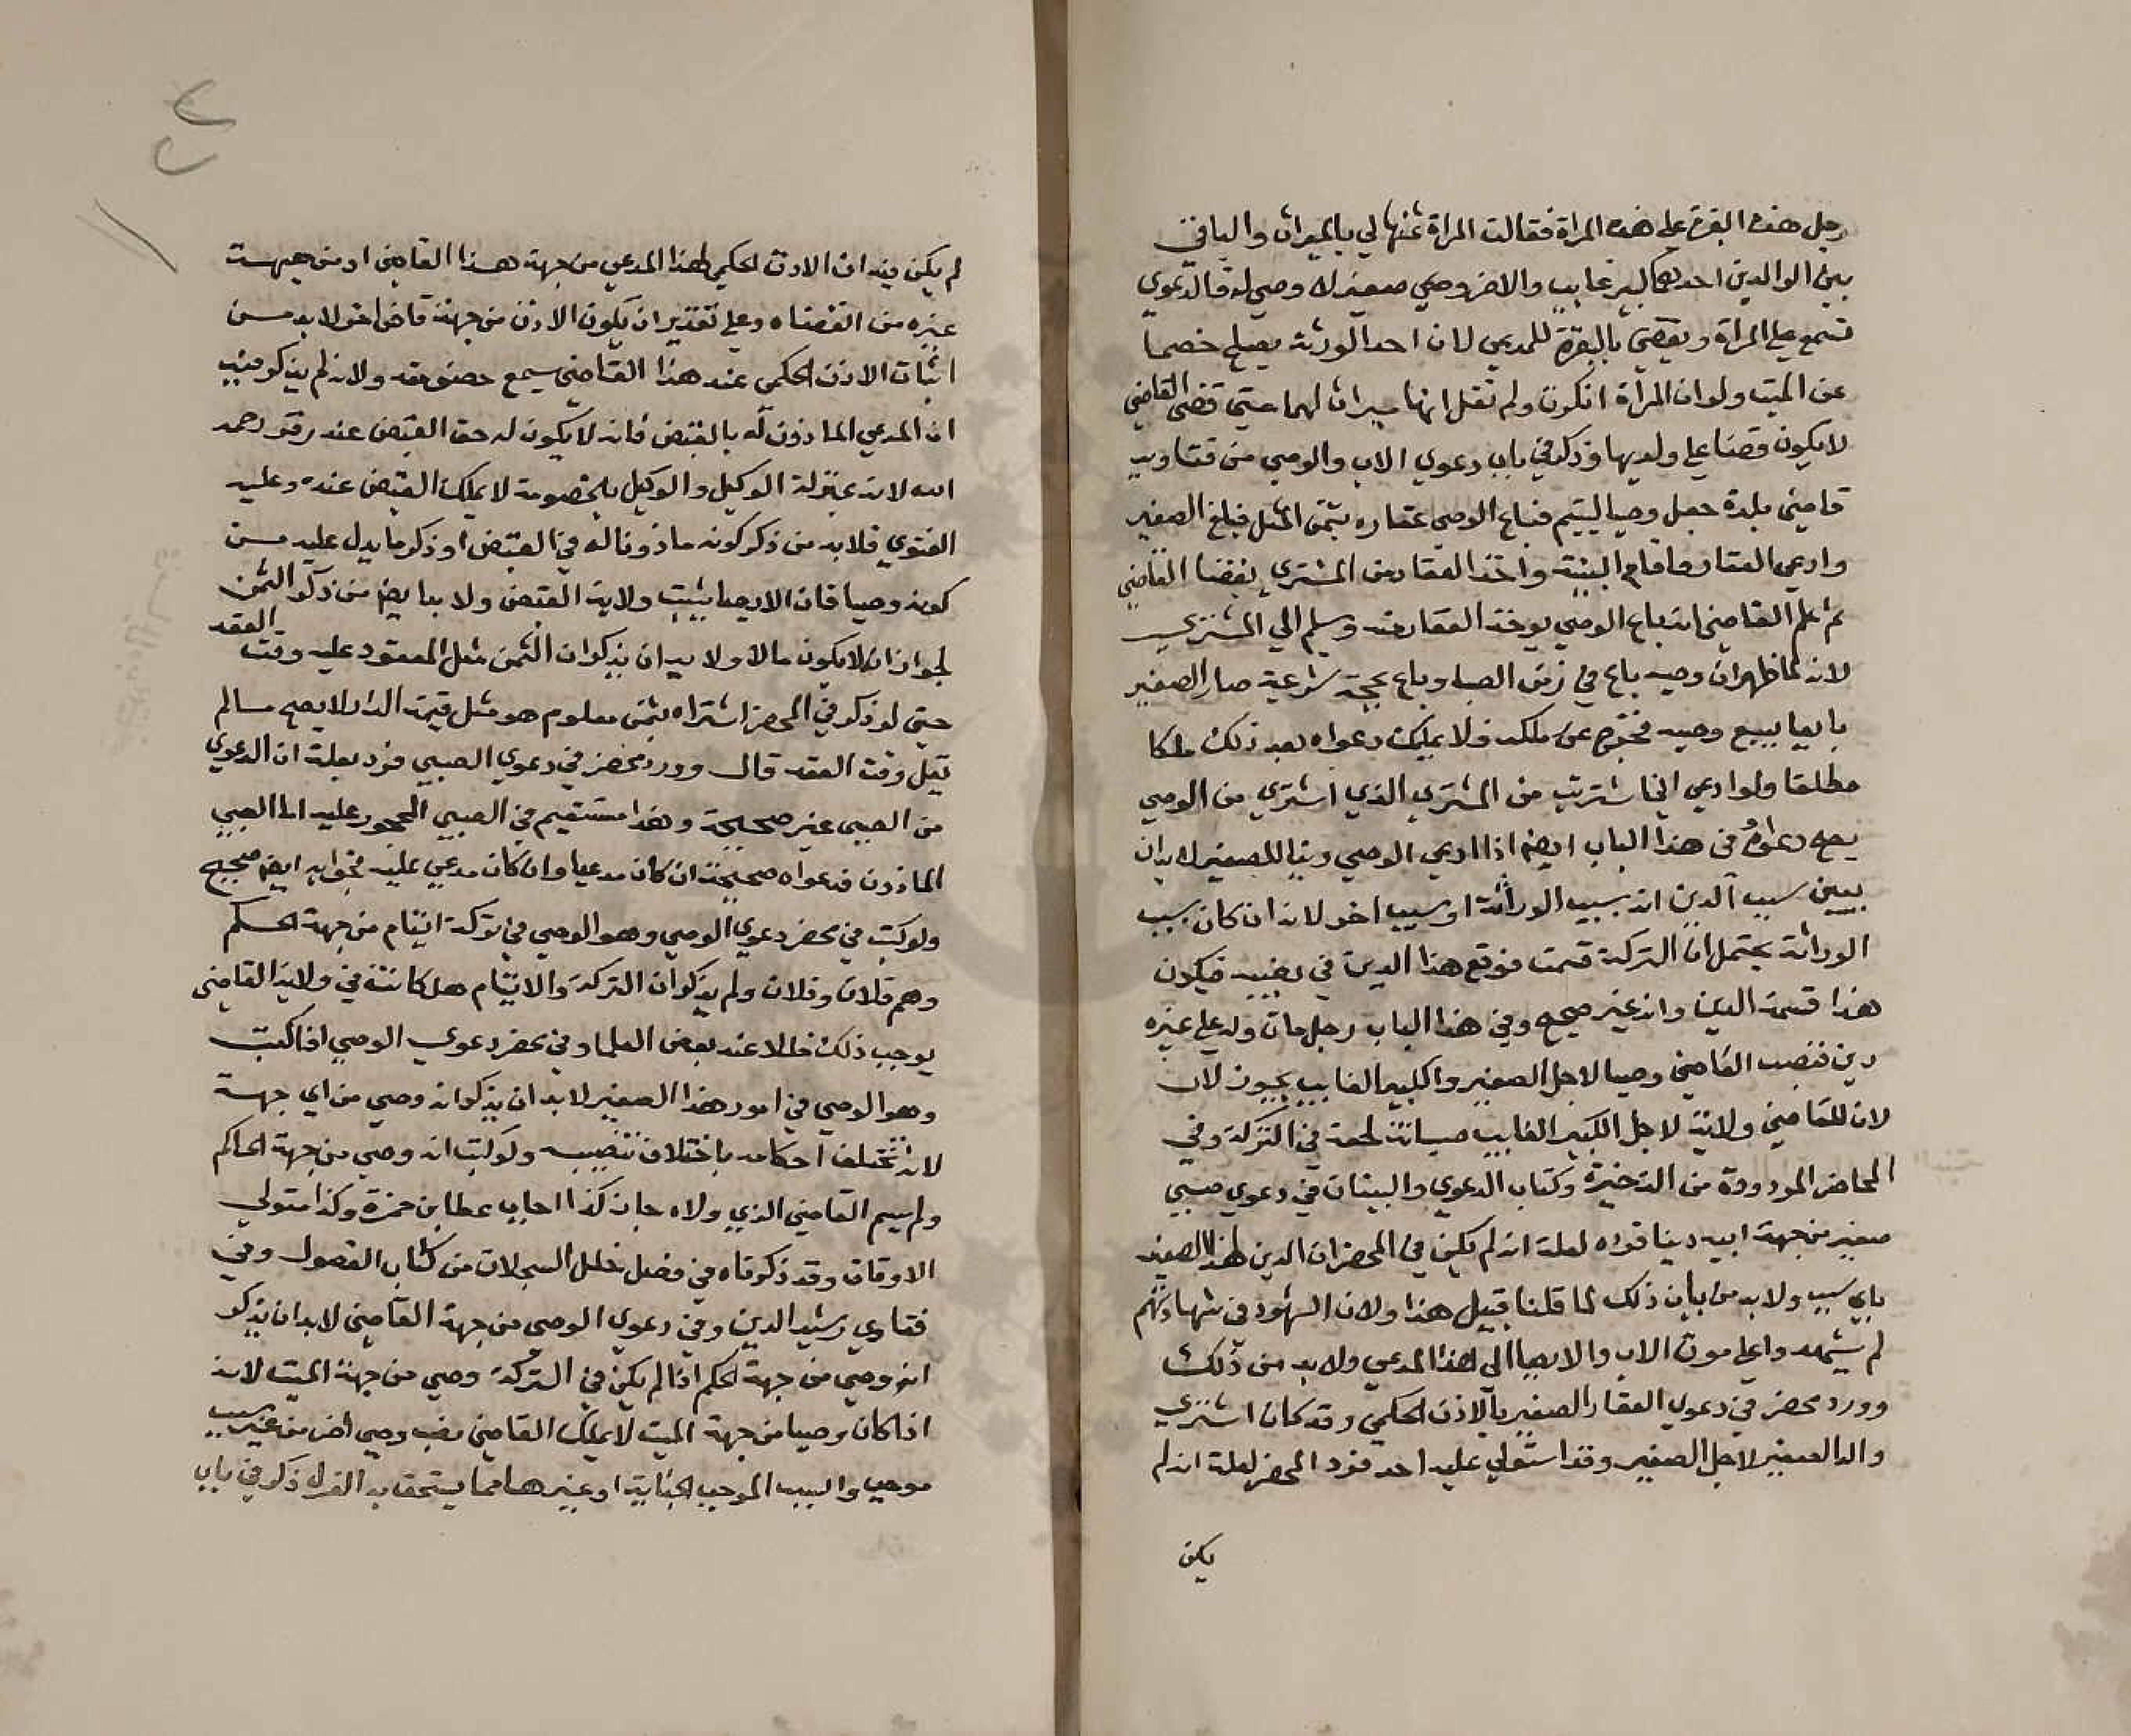 رجل هذه البقرة على هذه المراة فقالت المراة ثمنها لي بالميراث والباقي
بين الوالدين احدهما كبير غايب والاخر وصي صغير له وصي له فالدعوي
تسمع علي المراة ويقضي بالبقرة للمدعي لان احد الورثة يصلح خصما
عن الميت ولو ان المراة انكرت ولم تقل انها ميراث لهما حتي قضى القاضي
لا يكون قضا على ولديها وذكر في باب دعوي الاب والوصي من فتاويه
قاضي بلدة جعل وصيا ليتيم فباع الوصي عقاره بثمن المثل فبلغ الصغير
وادعي العقار واقام البينة واخذ العقار من المشتري بقضا القاضي
ثم علم القاضي انه باع الوصي يوخذ العقار منه ويسلم الي المشتري
لانه لما ظهر ان وصيه باع في زمن الصبا وباع بحجة شرعية صار الصغير
بايعا ببيع وصيه فخرج عن ملكه فلا يملك دعواه بعد ذلك ملكا
مطلقا ولو ادعي اني اشتريت من المشتري الذي اشتري من الوصي
يصح دعواه وفي هذا الباب ايضا اذا ادعي الوصي دينا للصغير لا بد ان
يبين سبب الدين انه بسبب الوراثة او سبب اخر لانه ان كان بسبب
الوراثة يحتمل ان التركة قسمت فوقع هذا الدين في نصيبه فيكون
هذا قسمة الدين وانه غير صحيح وفي هذا الباب رجل مات وله على غيره
دين فنصب القاضي وصيا لاجل الصغير والكبير الغايب يجوز لان
لان للقاضي ولاية لاجل الكبير الغايب صيانة لحقه في التركة وفي
المحاضر المردودة من الذخيرة وكتاب الدعوي والبينات في دعوي صبي
صغير من جهة ابيه دينا فرده لعلة انه لم يكن في المحضر ان الدين لهذا الصغير
باي سبب ولا بد من بيان ذلك لما قلنا قبيل هذا ولان الشهود في شهادتهم
لم يشهدوا على موت الاب والايصا الي هذا المدعي ولا بد من ذلك
وورد محضر في دعوي العقار الصغير بالاذن الحكمي وقد كان اشتري
والد الصغير لاجل الصغير وقد استولي عليه احد فرد المحضر لعلة انه لم
يكن
لم يكن فيه ان الاذن الحكمي لهذا المدعي من جهة هذا القاضي او من جهت
غيره من القضاه وعلي تقدير ان يكون الاذن من جهة قاض اخر لا بد من
اثبات الاذن الحكمي عند هذا القاضي يسمع خصومته ولانه لم يذكر فيه
ان المدعي الماذون له بالقبض فانه لا يكون له حق القبض عند زفر رحمه
الله لانه بمنزلة الوكيل والوكيل بالخصومة لا يملك القبض عنده وعليه
الفتوي فلا بد من ذكر كونه ماذونا له في القبض او ذكر ما يدل عليه من
كونه وصيا فان الايصا يثبت ولاية القبض ولا بد ايضا من ذكر الثمن
لجواز ان لا يكون مالا ولا بد ان يذكر ان الثمن مثل المعقود عليه وقت العقد
حتي لو ذكر في المحضر اشتراه بثمن معلوم هو مثل قيمة الدار لا يصح ما لم
يقل وقت العقد قال وورد محضر في دعوي الصبي فرد بعلة ان الدعوي
من الصبي غير صحيحة وهذا مستقيم في الصبي المحجور عليه اما الصبي
الماذون فدعواه صحيحة ان كان مدعيا وان كان مدعي عليه فجوابه ايضا صحيح
ولو كتب في محضر دعوي الوصي وهو الوصي في تركة ايتام من جهة الحكم
وهم فلان وفلان ولم يذكر ان التركة والايتام هل كانت في ولاية القاضي
يوجب ذلك خللا عند بعض العلما وفي محضر دعوي الوصي اذا كتب
وهو الوصي في امور هذا الصغير لا بد ان يذكر انه وصي من اي جهة
لانه تختلف احكامه باختلاف تنصيبه ولو كتب انه وصي من جهة الحاكم
ولم يسم القاضي الذي ولاه جاز كذا اجاب عطا بن حمزة وكذا متولي
الاوقاف وقد ذكرناه في فصل خلل السجلات من كتاب الفصول وفي
فتاوي رشيد الدين وفي دعوي الوصي من جهة القاضي لا بد ان يذكر
انه وصي من جهة الحكم اذا لم يكن في التركة وصي من جهة الميت لانه
اذا كان وصيا من جهة الميت لا يملك القاضي نصب وصي اخر من غير سبب
موجب والسبب الموجب الجناية او غيرها مما يستحق به العزل ذكر في باب